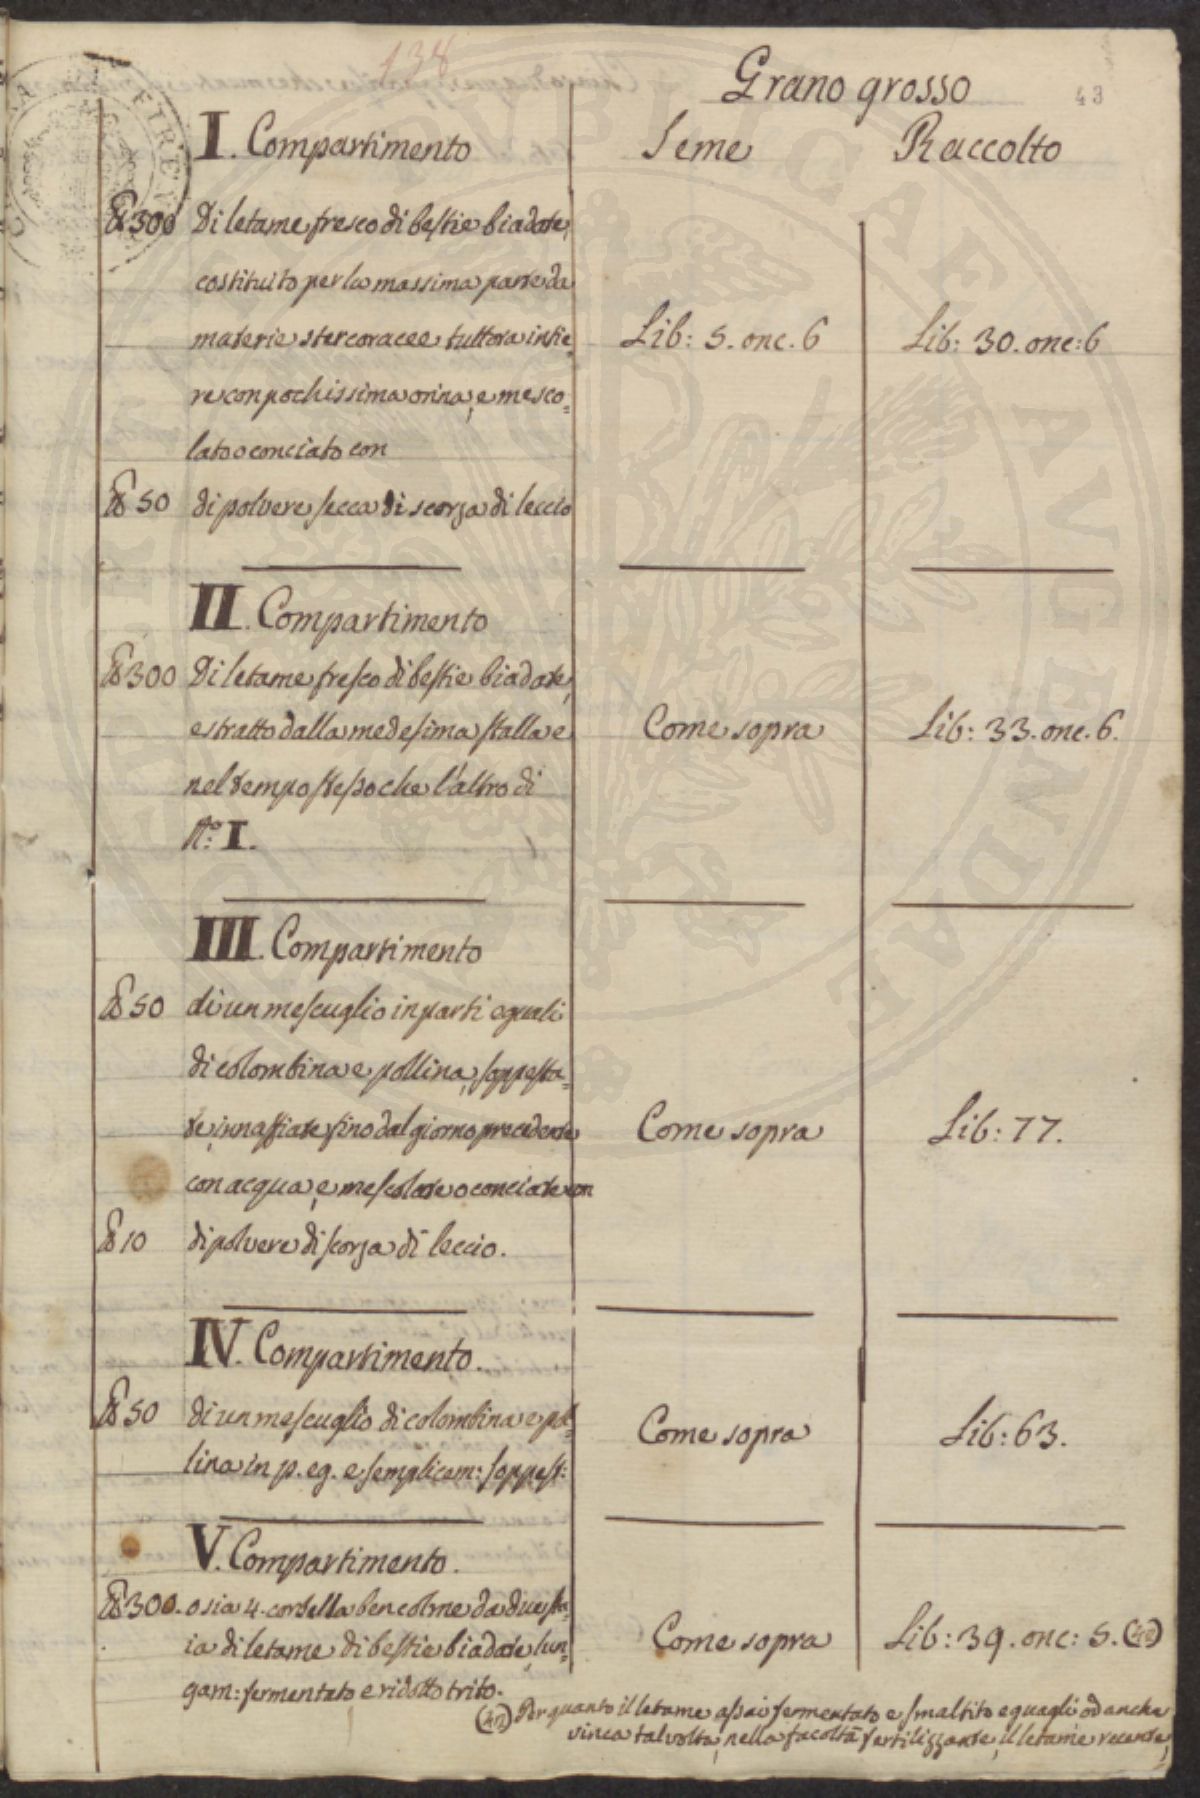 138
Grano grosso
43
I. Compartimento Seme Raccolto
℔ 300 Di letame fresco di bestie biadate,
costituito per la massima parte da
materie stercoracee tuttora intie= Lib: 5. onc. 6 Lib: 30. onc: 6
re con pochissima orina, e mesco=
lato o conciato con
℔ 50 di polvere secca di scorza di leccio
II. Compartimento
℔ 300 Di letame fresco di bestie biadate,
estratto dalla medesima stalla e Come sopra Lib: 33. onc. 6.
nel tempo stesso che l'altro di
N.º I.
III. Compartimento
℔ 50 di un mescuglio in parti eguali
di colombina e pollina, soppesta=
te, innaffiate fino dal giorno precedente Come sopra Lib: 77.
con acqua, e mescolate o conciate con
℔ 10 di polvere di scorza di leccio.
IV. Compartimento.
℔ 50 di un mescuglio di colombina e pol= Come sopra Lib: 63.
lina in p. eg. e semplicem: soppest:
V. Compartimento.
℔ 300. o sia 4. corbella ben colme da due sta=
ia di letame di bestie biadate, lun= Come sopra Lib: 39. onc: 5. (42)
gam: fermentato e ridotto trito.
(42) Per quanto il letame assai fermentato e smaltito eguagli od anche
vinca talvolta, nella facoltà fertilizzante, il letame recente,
PVBLICAE AVGENDAE
FIRENZE